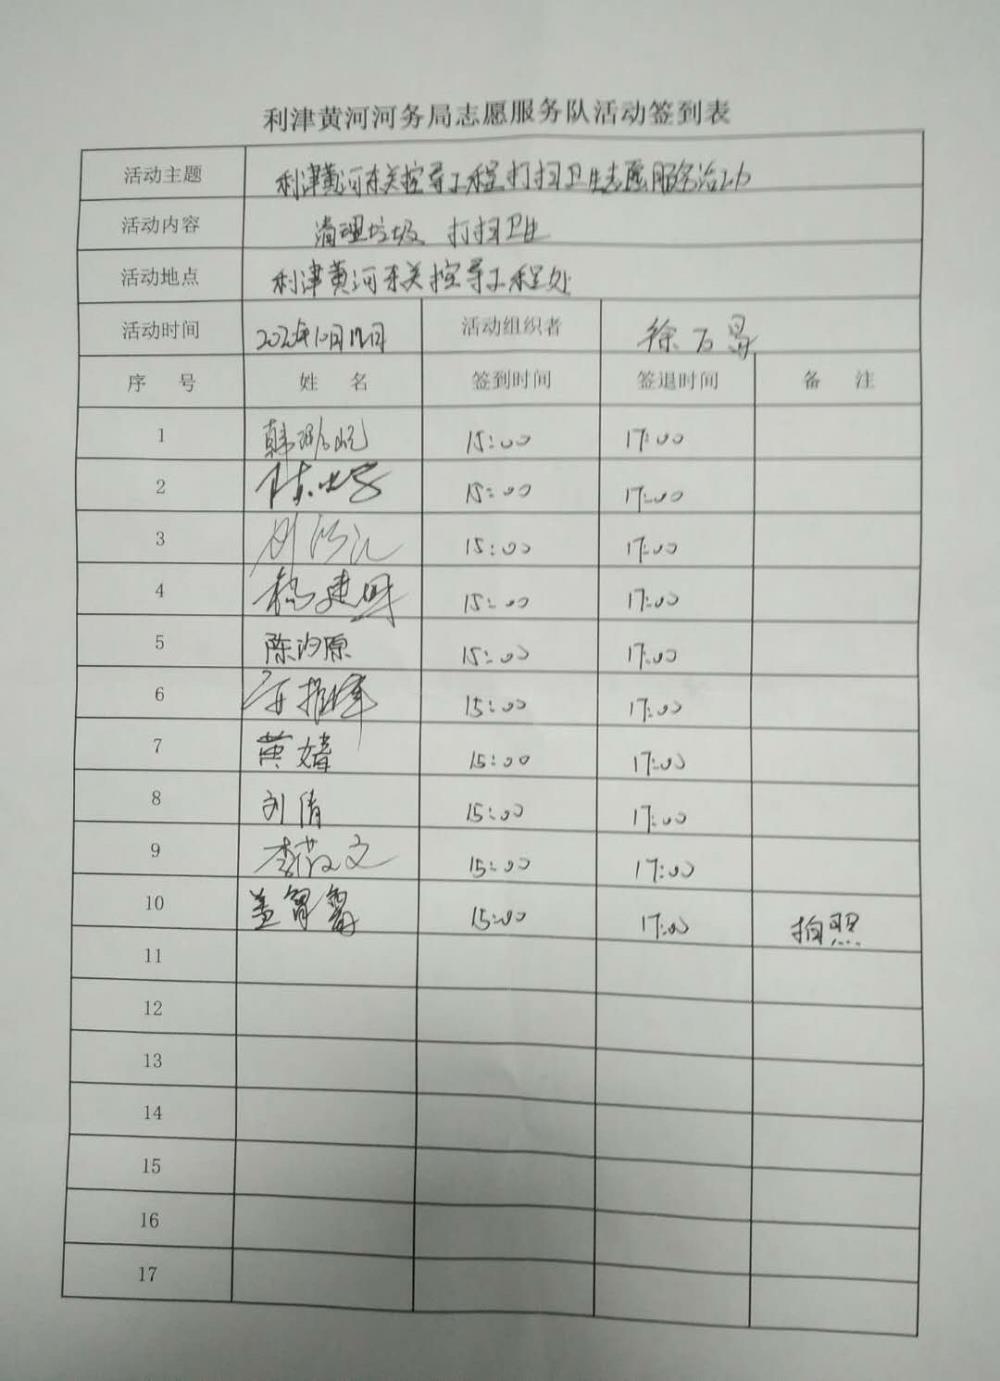 利津黄河河务局志愿服务队活动签到表
活动主题 利津黄河东关控导工程打扫卫生志愿服务活动
活动内容 清理垃圾 打扫卫生
活动地点 利津黄河东关控导工程处
活动时间 10月 日 活动组织者 徐
序 号 姓 名 签到时间 签退时间 备 注
1 韩 15:00 17:00
2 15:00 17:00
3 刘 15:00 17:00
4 杨建 15:00 17:00
5 陈汐原 15:00 17:00
6 15:00 17:00
7 黄婧 15:00 17:00
8 刘倩 15:00 17:00
9 李 文 15:00 17:00
10 盖 15:00 17:00 拍照
11
12
13
14
15
16
17